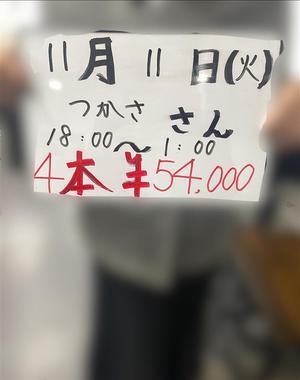 11月11日(火)
つかささん
18:00〜1:00
4本¥54,000